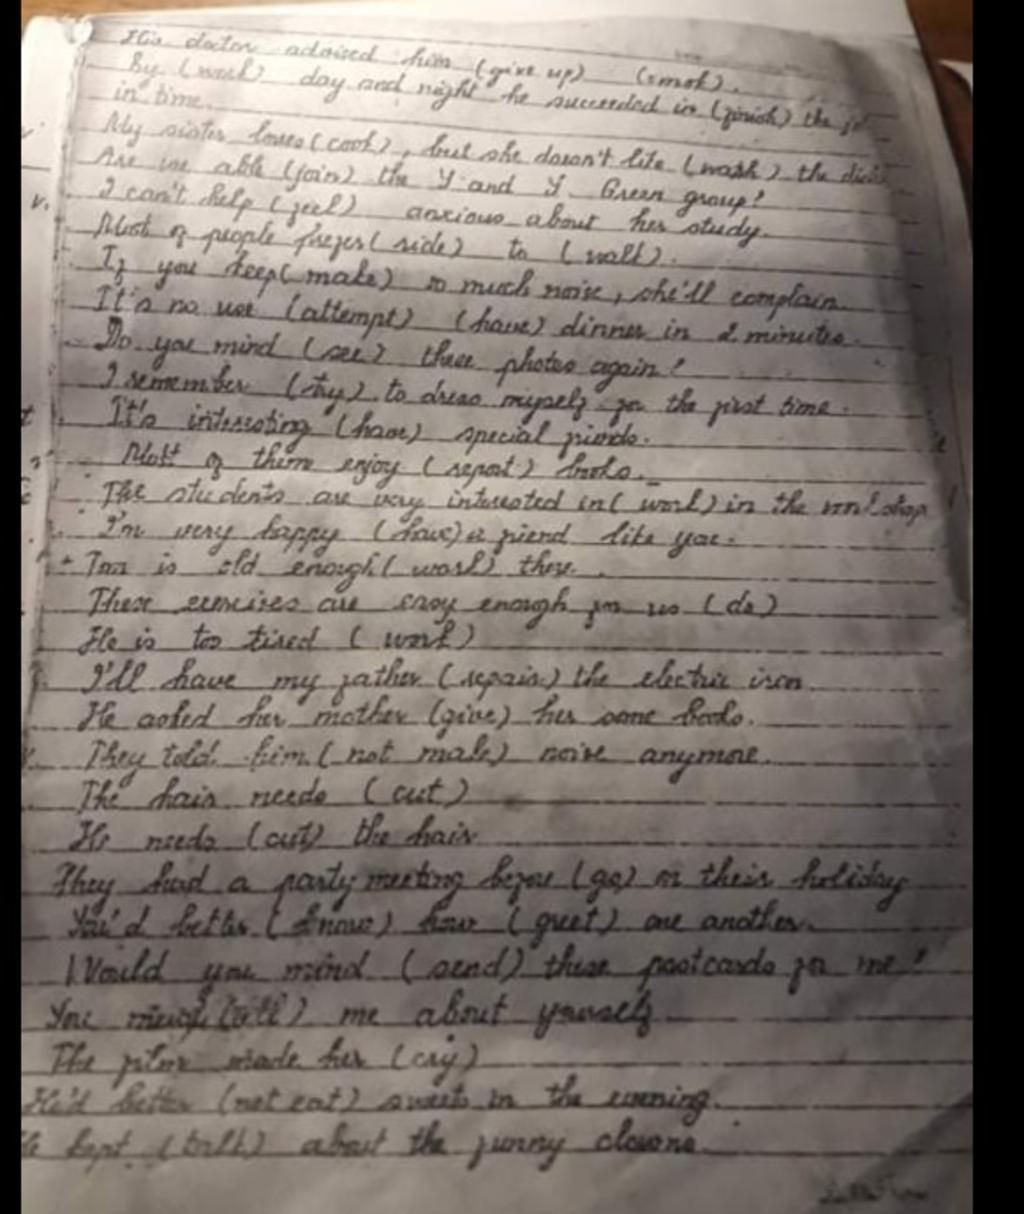 His doctor advised him (give up) (smok).
By (work) day and night he succeeded in (finish) the
in time.
My sister loves (cook), but she doesn't like (wash) the
Are we able (join) the Y and Y Green group?
I can't help (feel) anxious about her study.
Most of people prefer (ride) to (walk).
If you keep (make) so much noise, she'll complain.
It's no use (attempt) (have) dinner in 2 minutes.
Do you mind (see) these photos again?
I remember (try) to dress myself for the first time.
It's interesting (have) special friends.
of them enjoy (report) books.
The students are very interested in (work) in the
I'm very happy (have) a friend like you.
is old enough (work) there.
These exercises are easy enough for us (do)
He is too tired (work)
I'll have my father (repair) the electric iron.
He asked her mother (give) her some books.
They told him (not make) noise anymore.
The hair needs (cut)
He needs (cut) the hair
They had a party meeting before (go) on their holiday
You'd better (know) how (greet) one another.
Would you mind (send) these postcards for me?
You (tell) me about yourself
The made her (cry)
He'd better (not eat) sweets in the evening.
kept (talk) about the funny clowns.